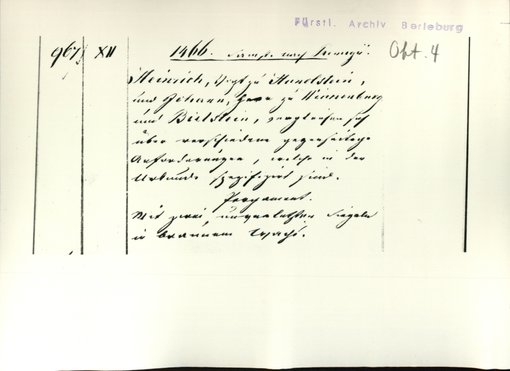 Fürstl. Archiv Berleburg
967 XII 1466. Okt. 4
Heinrich, Vogt zu Hunolstein,
und Johann, Herr zu Winnenburg
und Beilstein, vergleichen sich
über verschiedene gegenseitige
Anforderungen, welche in der
Urkunde spezifiziert sind.
Pergament.
Mit zwei, unverletzten Siegeln
in braunem Wachs.